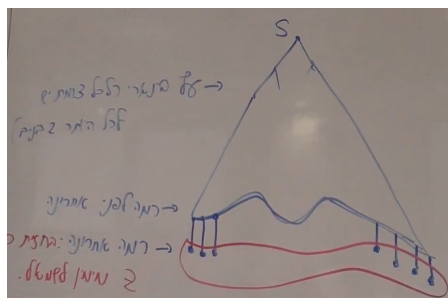 S
עץ בינארי (לכל צומת יש
לכל היותר 2 בנים)
רמה לפני אחרונה →
רמה אחרונה:
מימין לשמאל.